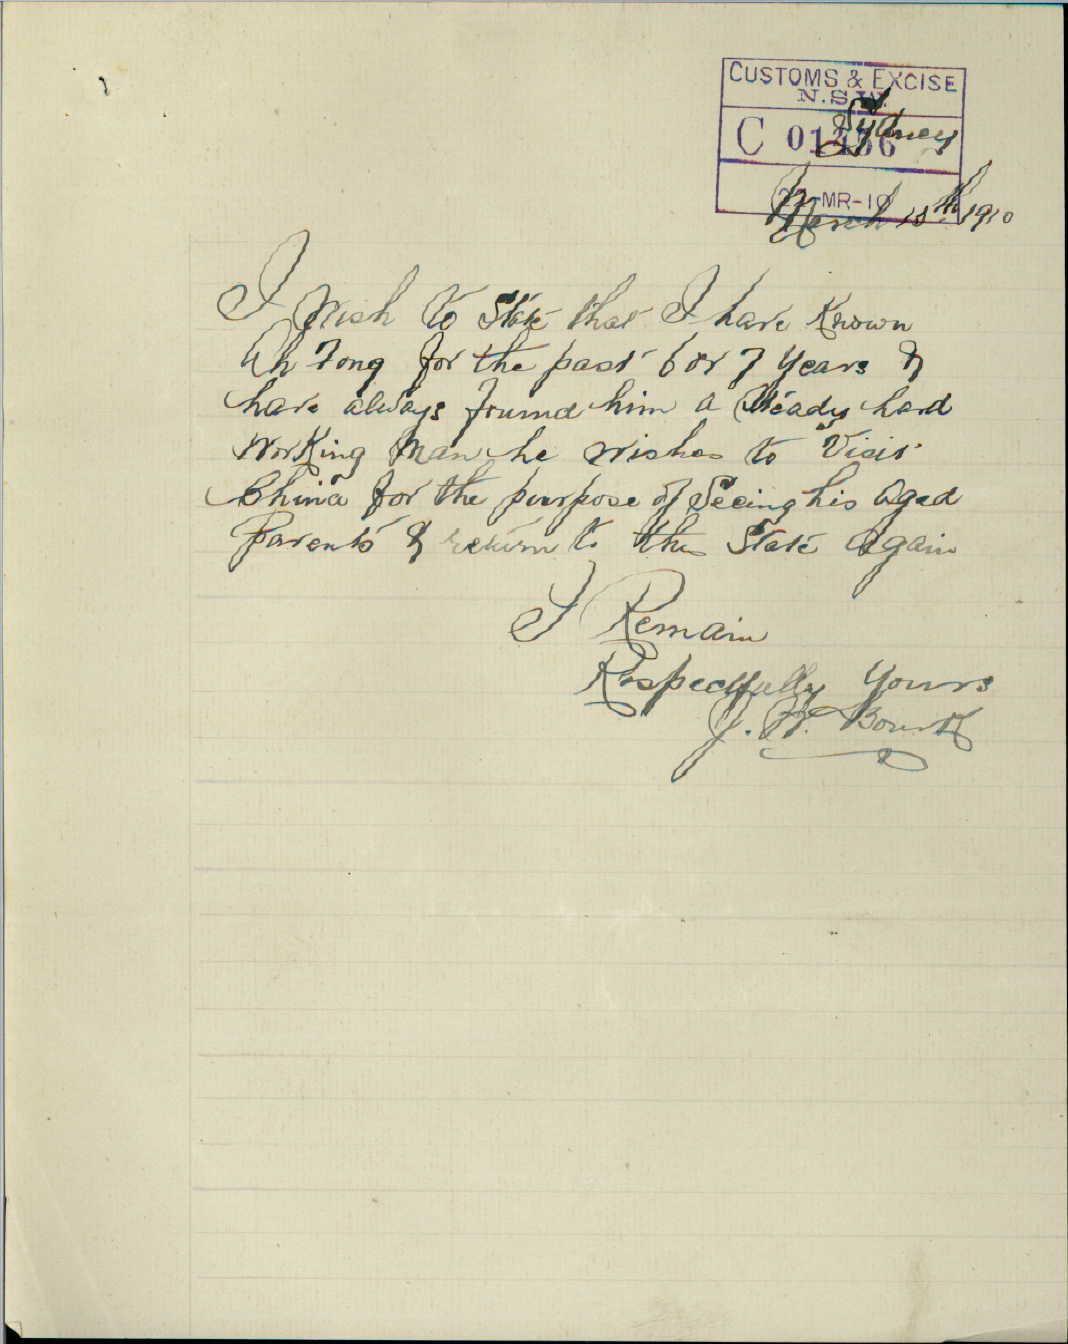 CUSTOMS & EXCISE
N.S.W.
Sydney
C 01456
22-MR-10
March 18th 1910
I Wish to State that I have Known
Ah Fong for the past 6 or 7 Years &
have always found him a Steady hard
Working Man he wishes to Visit
China for the purpose of Seeing his Aged
Parents & return to this State Again
I Remain
Respectfully Yours
J. H.